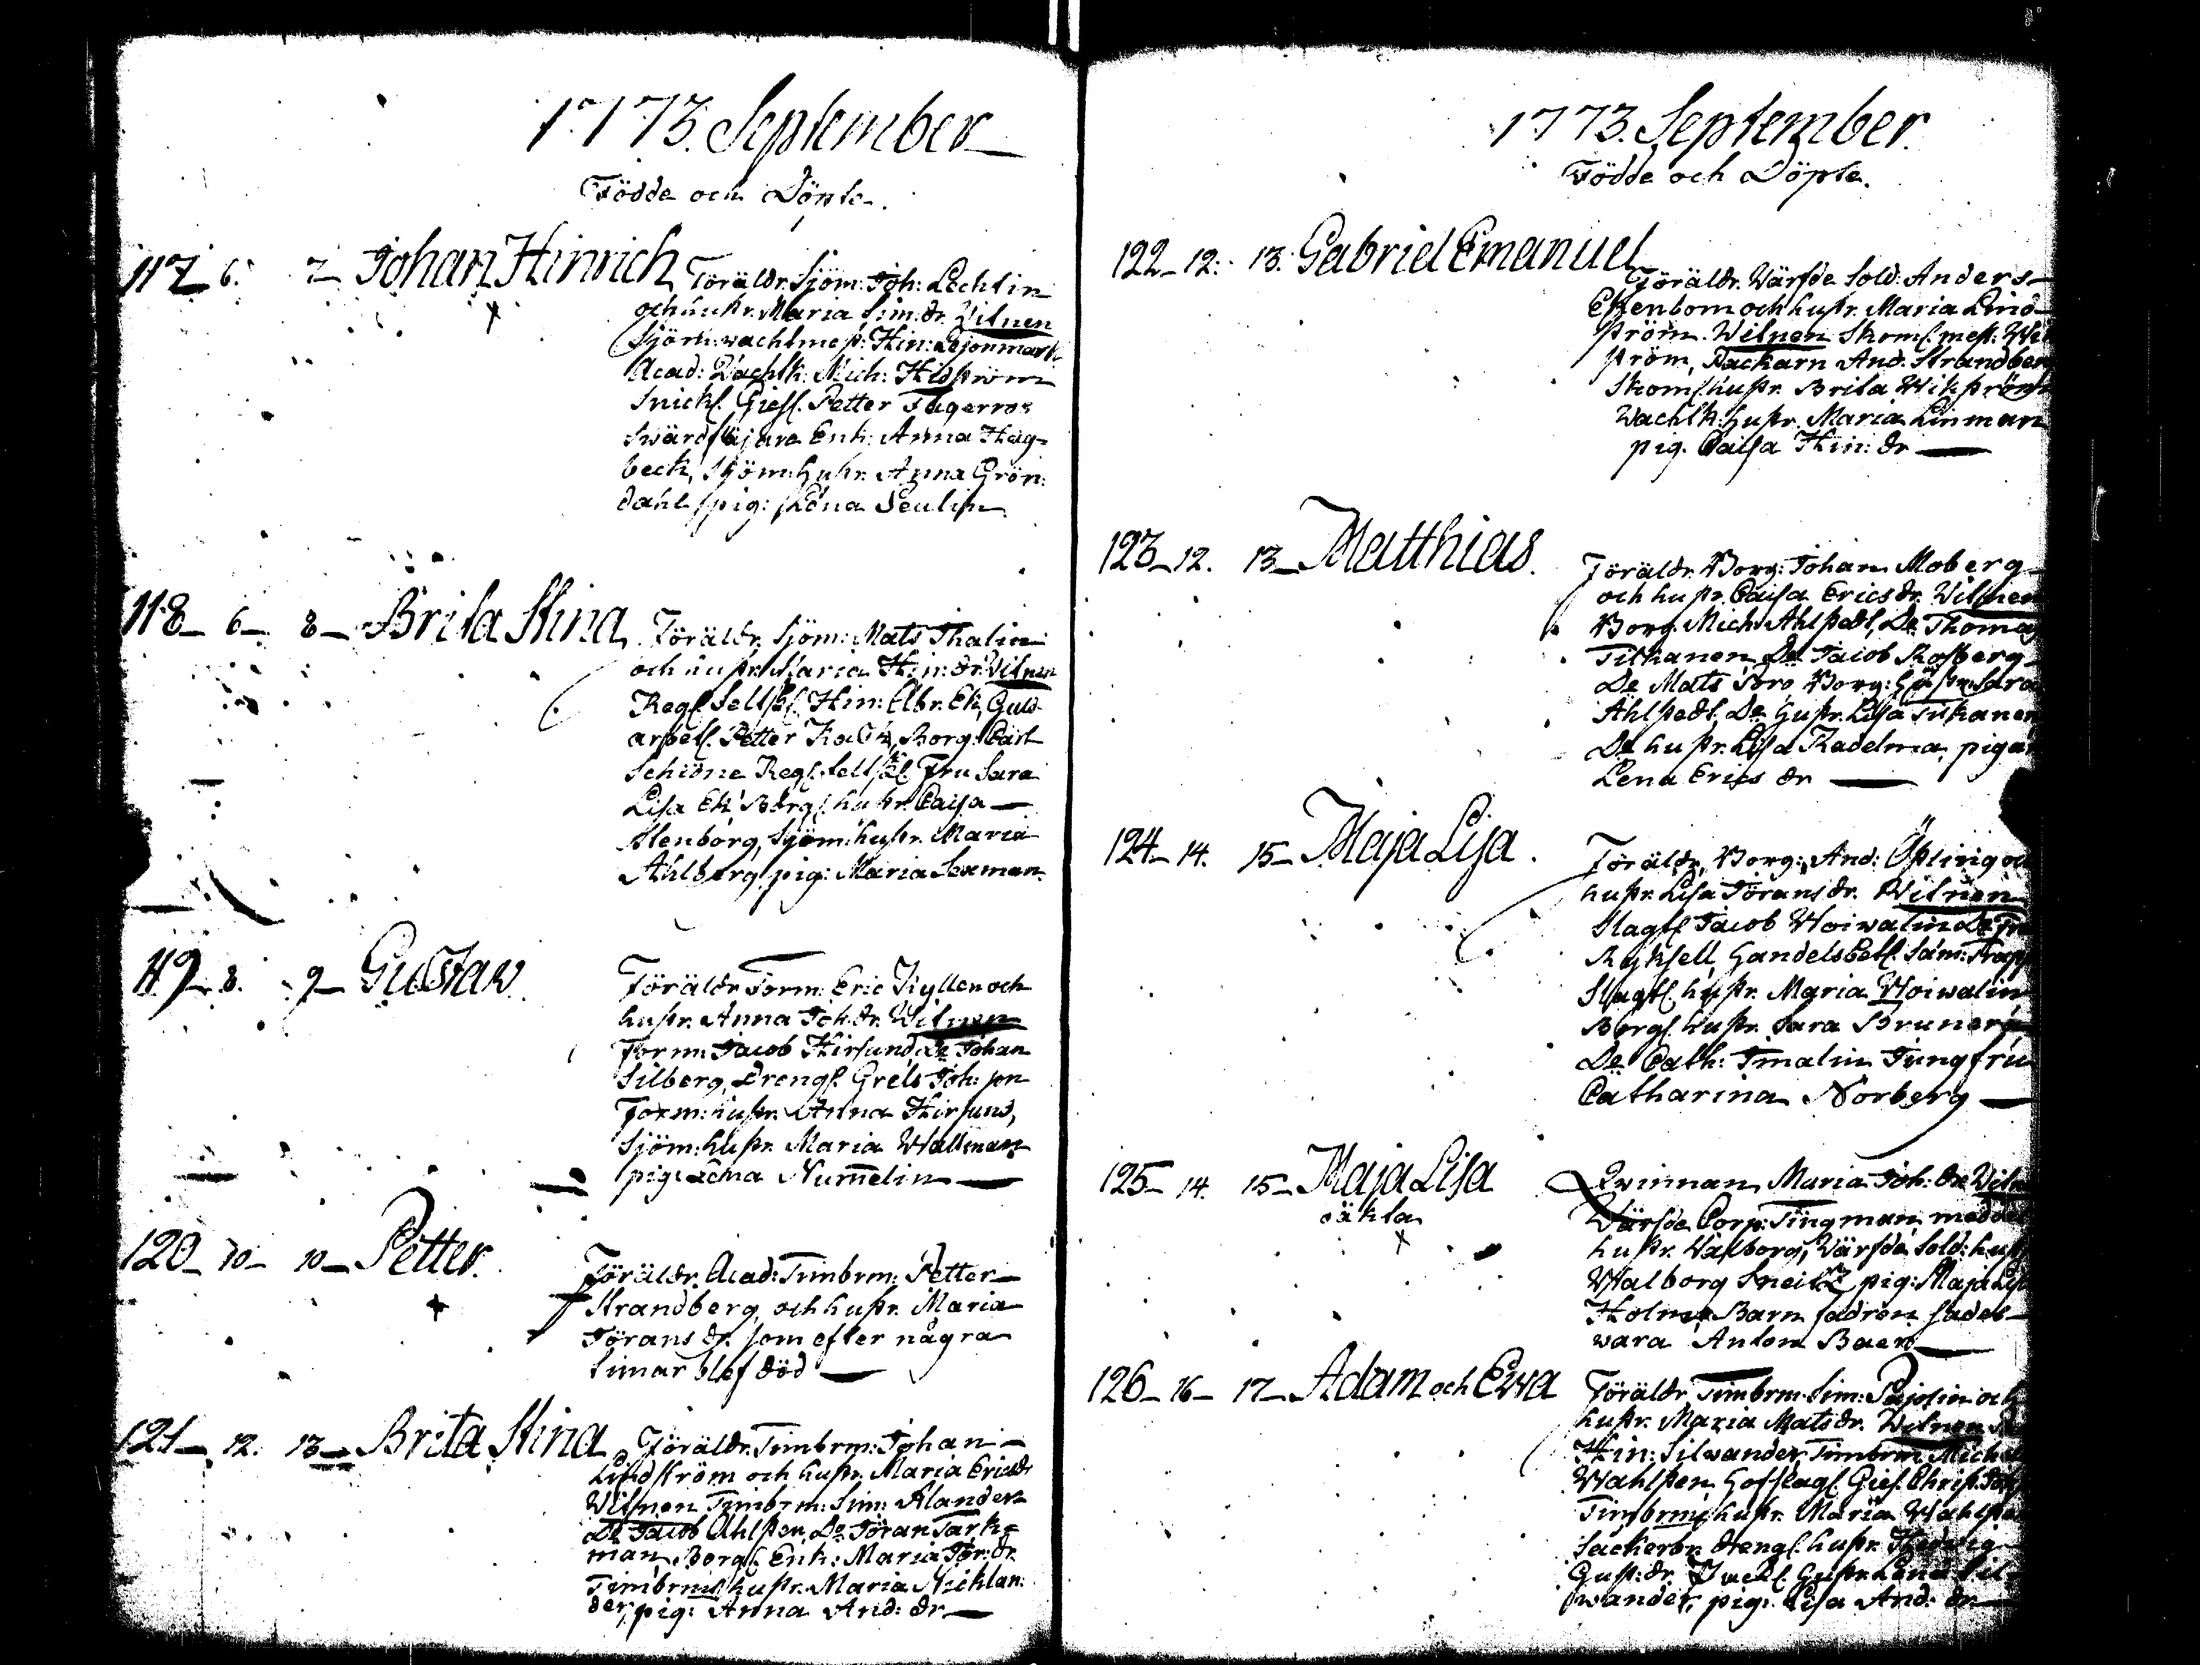 1773. September
Födde och Döpte.
117 6. 7 Johan Hinrich Föräldr. Sjöm: Joh: Lechlin
och hustr. Maria Sim: dr. Witnen
Sjöm: wachtmest: Hin: Lejonmark
Acad: Wachtk: Mich: Hedström
Snick: Gies: Petter Fagerros
Swärdfäjare Enk: Anna Hag-
beck, Sjöm: hustr. Anna Grön-
dahl pig: Lena
118 6 8 Brita Stina Föräldr. Sjöm: Mats Thalin
och hustr. Maria Hin: dr. Witnen
Reg: Hin: Elbr. Ek, Guld
Petter Borg: Carl
Schiöne Reg: Fru Sara
Lisa Ek Borg: hustr. Caisa
Alenborg, Sjöm: hustr. Maria
Ahlberg pig: Maria
119 8. 9 Gustaw. Föräldr. Torm: Eric Kyllen och
hustr. Anna Joh. dr. Witnen
Torm: Jacob Hirsund, Do Johan
Silberg, Dreng: Grels Joh: son
Torm: hustr. Anna Hirsund,
Sjöm: hustr. Maria Wallman
pig: Lena Num̄elin
120 10 10 Petter. Föräldr. Acad: Timbrm: Petter
Strandberg, och hustr. Maria
Jörans dr. som efter några
timar blef död
121 12. 13 Brita Stina Föräldr. Timbrm: Johan
Lindström och hustr. Maria Ericsdr
Witnen Timbrm: Sim: Alander
Do Jacob Ahlsten, Do Jöran Tark-
man, Borg: Enk: Maria Jör: dr.
Timbrm: hustr. Maria Nicklan-
der, pig: Anna And: dr
1773. September.
Födde och Döpte.
122 12. 13. Gabriel Emanuel
Föräldr. Wärfde Sold: Anders
Ekenbom och hustr. Maria Lind-
ström. Witnen Skom: mest:
ström, Packarn And: Strandber
Skom: hustr. Brita Wikström
Wachtk: hustr. Maria Linman
pig. Caisa Hin: dr
123 12. 13 Matthias. Föräldr. Borg: Johan Moberg
och hustr. Caisa Ericsdr. Witnen
Borg. Mich: Ahlstedt, Do Thomas
Titkanen Do Jacob Rosberg
Do Mats Toro Borg: Hustr. Sara
Ahlstedt. Do Hustr. Lisa Titkanen
Do hustr. Lisa Radelma, pigan
Lena Erics dr
124 14. 15 Maja Lisa. Föräldr. Borg: And: Östling och
hustr. Lisa Jörans dr. Witnen
Slagt: Jacob Woiwalin Do
Handelsbet: Sam:
Slagt: hustr. Maria Woiwalin
Borg: hustr. Sara Bruner,
Do Cath: Timalin Jungfru
Catharina Norberg
125 14. 15 Maja Lisa Qwinnan Maria Joh: dr Witn
oäkta
Wärfde Corp: Tingman med dess
hustr. Walborg, Wärfde Sold: hustr
Walborg pig: Maja Lisa
Holm, Barn fadren sades
wara Anton Baer
126 16 17 Adam och Ewa Föräldr. Timbrm: Sim: och
hustr. Maria Mats dr. Witnen
Hin: Silwander, Timbrm: Michel
Wahlsten, Hofslag: Gies: Christ.
Timbrm: hustr. Maria Wahlsten
Sackerbr. dreng: hustr. Hedwig
Gust: dr. hustr. Lena Sil-
wander, pig: Lisa And: dr